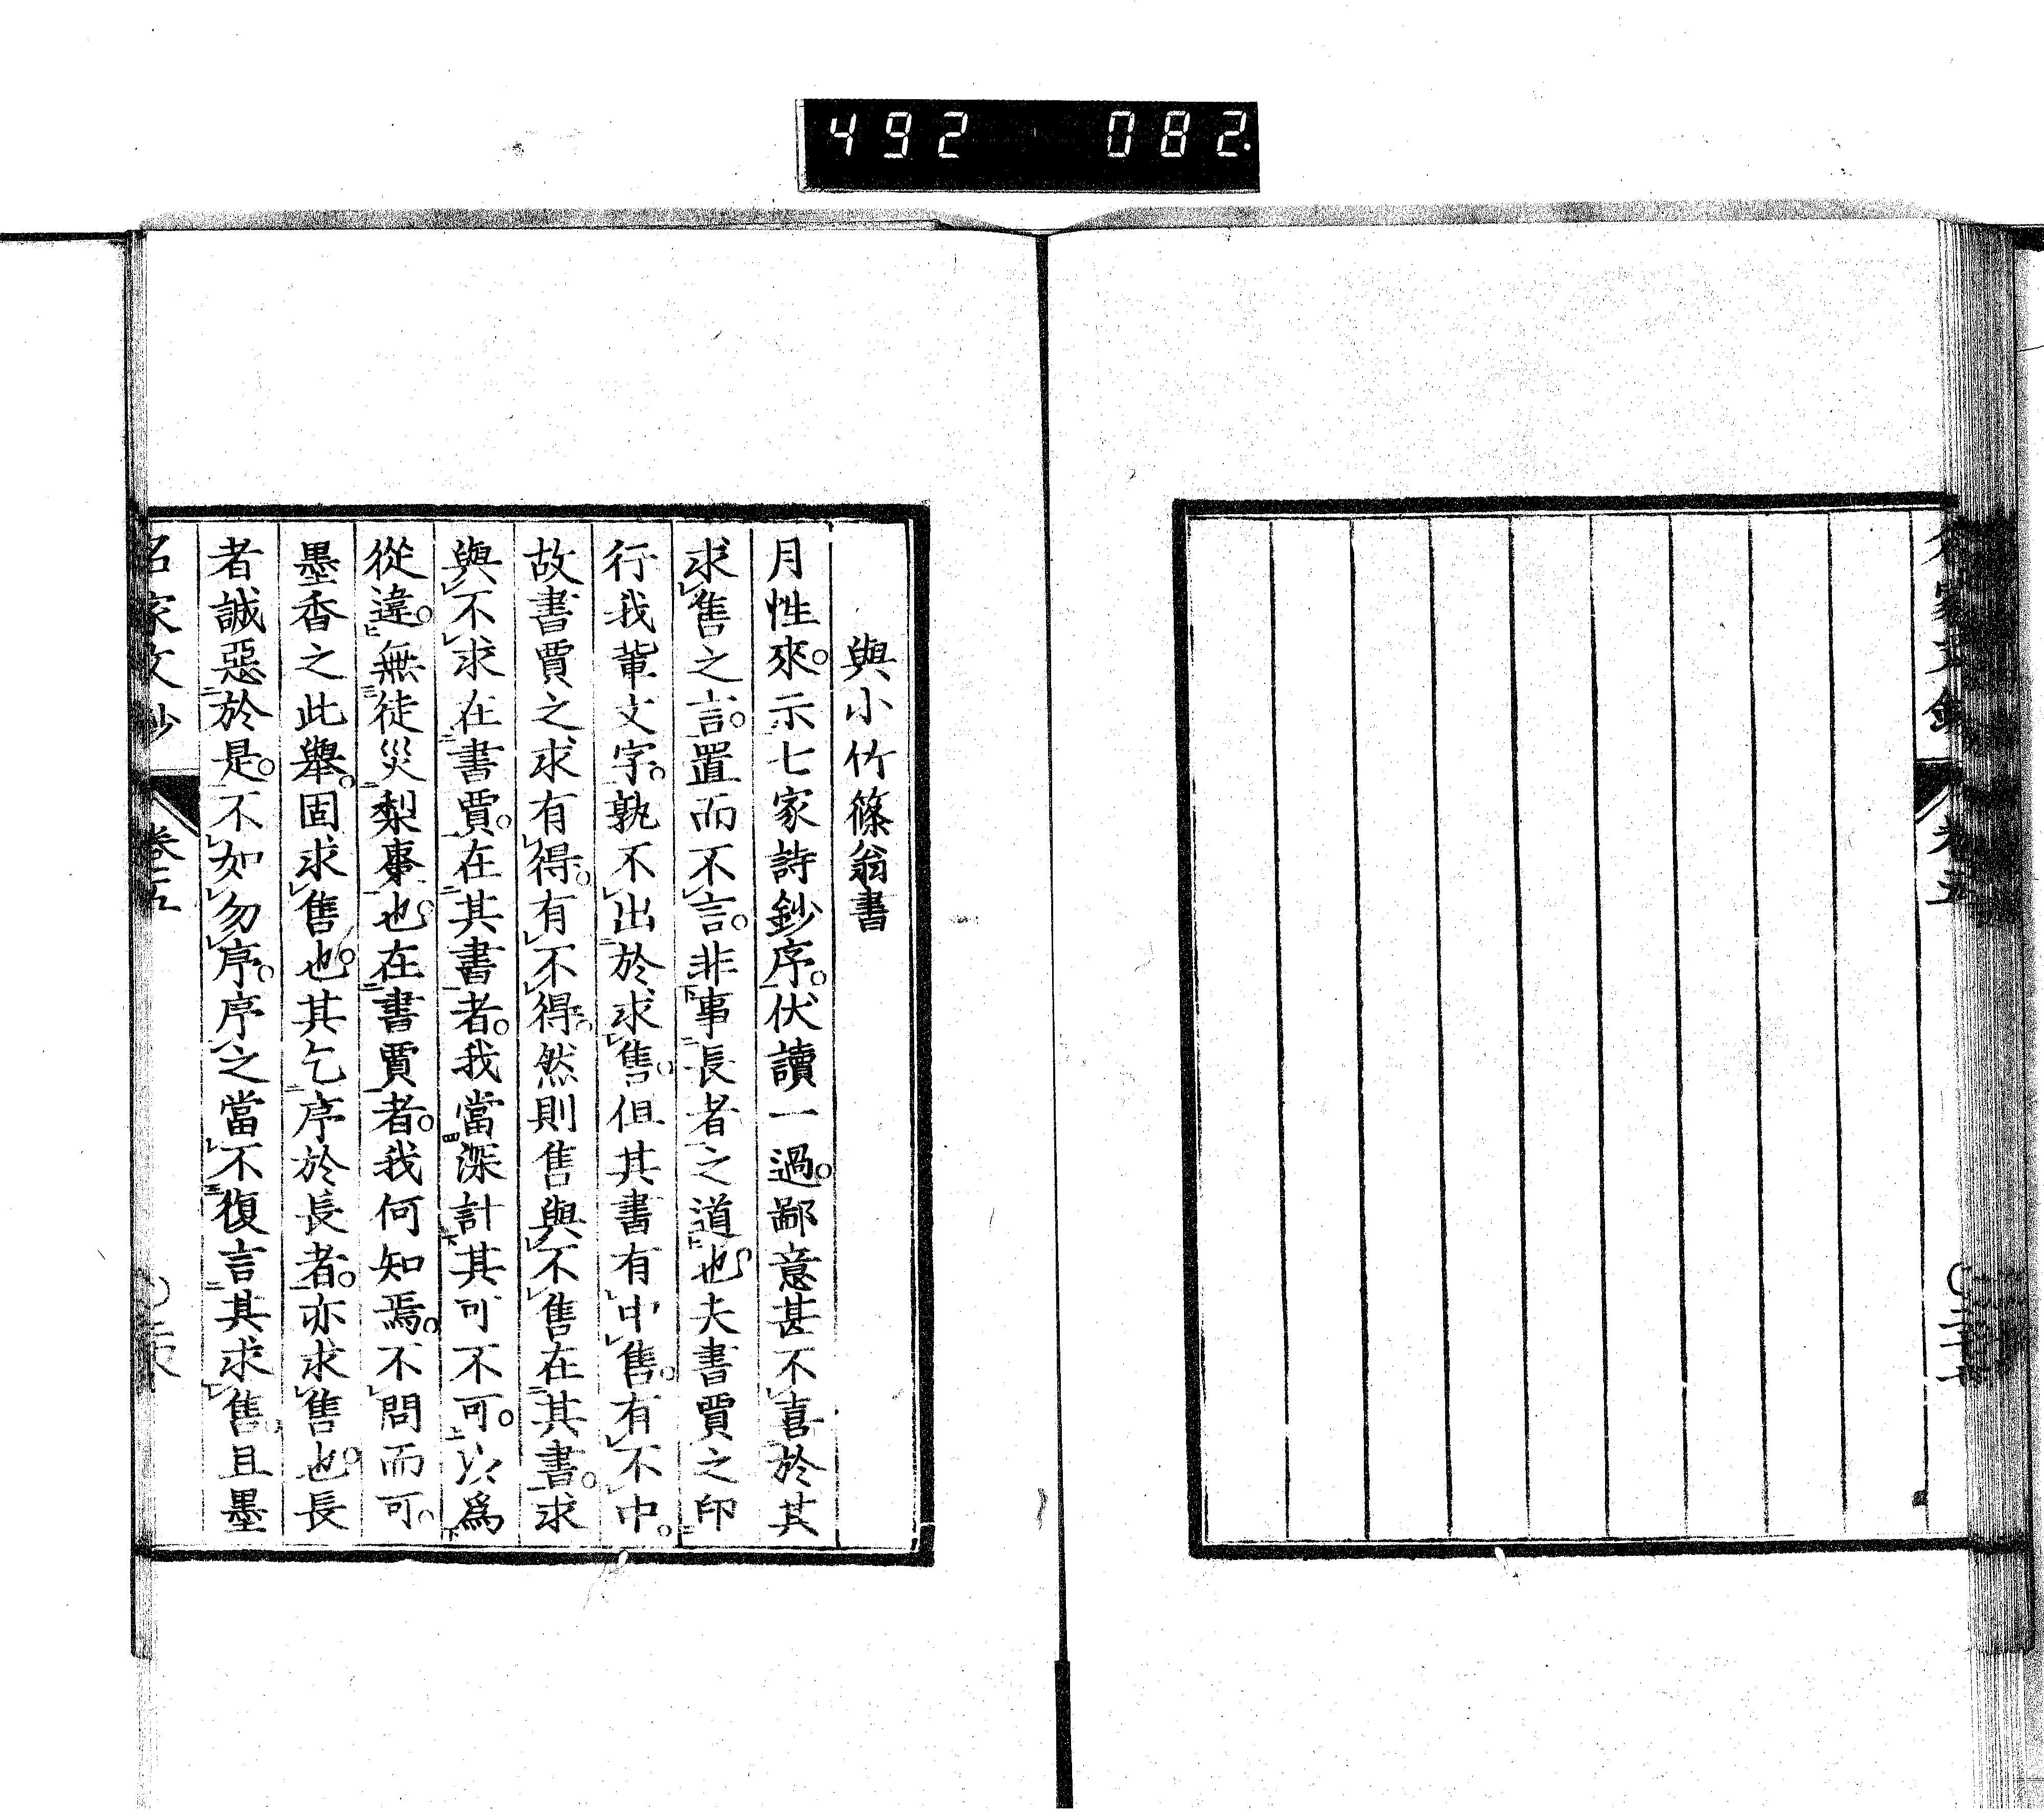 492 082.
與小竹篠翁書
月性來。示七家詩鈔序。伏讀一過。鄙意甚不喜於其
求售之言。置而不言。非事長者之道也。夫書賈之印
行我輩文字。孰不出於求售。但其書有中售。有不中。
故書賈之求有得。有不得。然則售與不售在其書。求
與不求在書賈。在其書者。我當深計其可不可。以爲
從違。無徒災梨棗也。在書賈者。我何知焉。不問而可。
墨香之此舉。固求售也。其乞序於長者。亦求售也。長
者誠惡於是。不如勿序。序之當不復言其求售。且墨
名家文鈔 卷之五